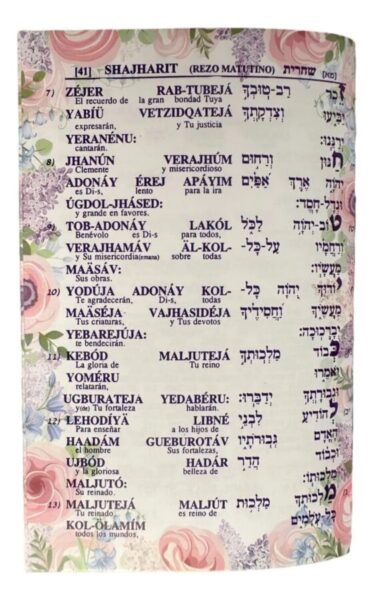 [41] SHAJHARIT (REZO MATUTINO) שחרית [מא]
7) ZÉJER RAB-TUBEJÁ רַב-טוּבְךָ זֵכֶר
El recuerdo de la gran bondad Tuya
YABIÜ VETZIDQATEJÁ וְצִדְקָתְךָ יַבִּיעוּ
expresarán, y Tu justicia
YERANÉNU: יְרַנֵּנוּ:
cantarán.
8) JHANÚN VERAJHÚM וְרַחוּם חַנּוּן
Clemente y misericordioso
ADONÁY ÉREJ APÁYIM יְהֹוָה אֶרֶךְ אַפַּיִם
es Di-s, lento para la ira
ÚGDOL-JHÁSED: וּגְדׇל-חָסֶד:
y grande en favores.
9) TOB-ADONÁY LAKÓL לַכֹּל טוֹב-יְהֹוָה
Benévolo es Di-s para todos,
VERAJHAMÁV ÄL-KOL- עַל-כׇּל- וְרַחֲמָיו
y Su misericordia(emana) sobre todas
MAÄSÁV: מַעֲשָׂיו:
Sus obras.
10) YODÚJA ADONÁY KOL- יְהֹוָה כׇּל- יוֹדוּךָ
Te agradecerán, Di-s, todas
MAÄSÉJA VAJHASIDÉJA וַחֲסִידֶיךָ מַעֲשֶׂיךָ
Tus criaturas, y Tus devotos
YEBAREJÚJA: יְבָרְכוּכָה:
te bendecirán.
11) KEBÓD MALJUTEJÁ מַלְכוּתְךָ כְּבוֹד
La gloria de Tu reino
YOMÉRU יֹאמֵרוּ
relatarán,
UGBURATEJA YEDABÉRU: יְדַבֵּרוּ: וּגְבוּרָתְךָ
y(de) Tu fortaleza hablarán.
12) LEHODÍYÄ LIBNÉ לִבְנֵי לְהוֹדִיעַ
Para enseñar a los hijos de
HAADÁM GUEBUROTÁV גְּבוּרֹתָיו הָאָדָם
el hombre Sus fortalezas,
UJBÓD HADÁR הֲדַר וּכְבוֹד
y la gloriosa belleza de
MALJUTÓ: מַלְכוּתוֹ:
Su reinado.
13) MALJUTEJÁ MALJÚT מַלְכוּת מַלְכוּתְךָ
Tu reinado, es reino de
KOL-ÖLAMÍM כׇּל-עֹלָמִים
todos los mundos,